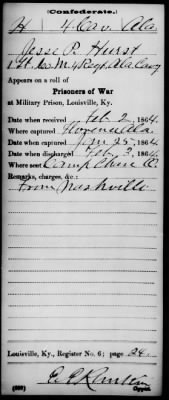 Confederate.
H 4 Cav. Ala.
Jesse P. Hurst
Co. M. 4 Regt. Ala Cavy
Appears on a roll of
Prisoners of War
at Military Prison, Louisville, Ky.
Date when received Feb 2, 1864.
Where captured Florence Ala.
Date when captured Jan 25, 1864.
Date when discharged Feb. 3, 1864.
Where sent Camp Chase O.
Remarks, charges, &c.:
From Nashville
Louisville, Ky., Register No. 6; page 24.
Copyist.